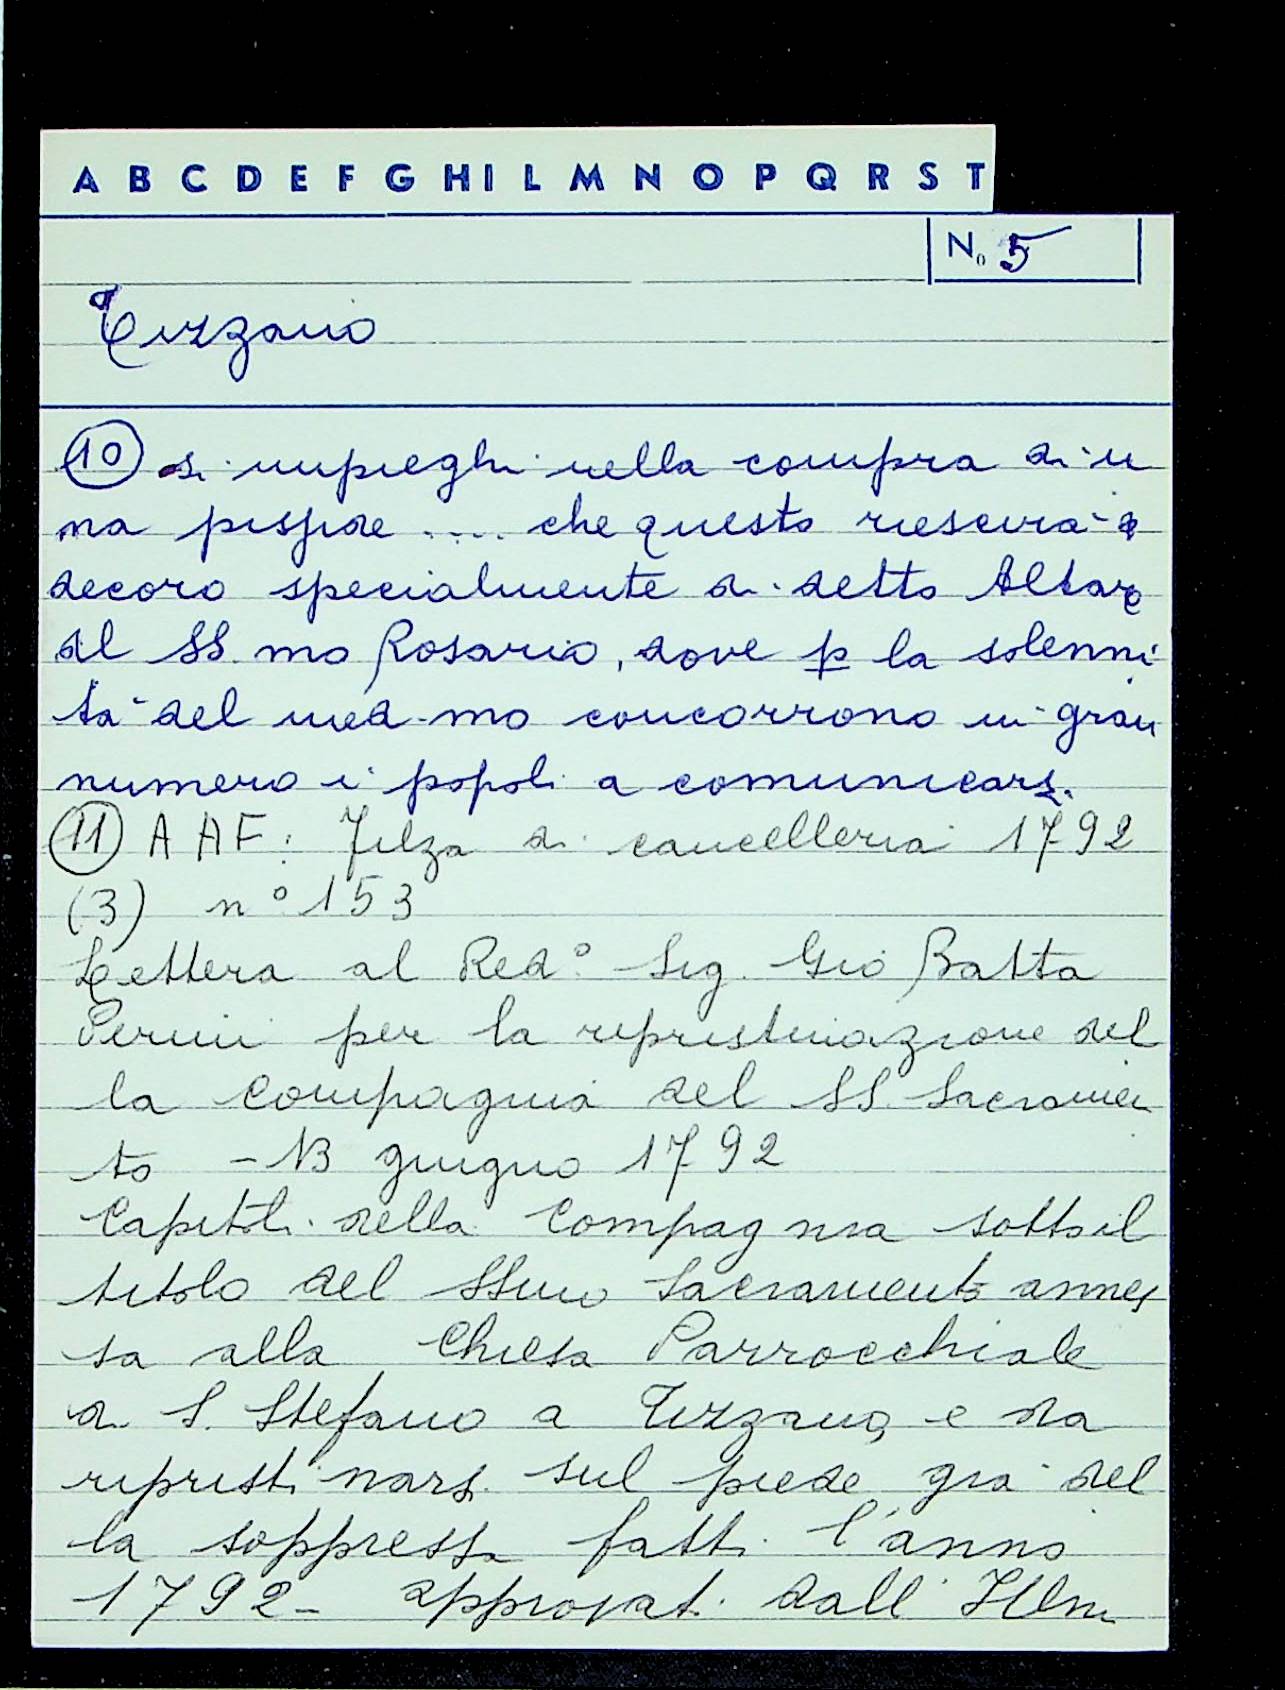 A B C D E F G H I L M N O P Q R S T
No 5
Tizzano
10 si impieghi nella compra di u
na pisside .... che questo riescirà a
decoro specialmente di detto Altare
del SS. mo Rosario, dove p la solenni
tà del med-mo concorrono in gran
numero i popoli a comunicarsi.
11 A A F: Filza di cancelleria 1792
(3) n° 153
Lettera al Red° Sig. Gio Batta
Perini per la ripristinazione del
la compagnia del SS. Sacramen
to - 13 giugno 1792
Capitoli della Compagnia sotto il
titolo del SSmo Sacramento annes
sa alla Chiesa Parrocchiale
di S. Stefano a Tizzano, e da
ripristinarsi sul piede già del
la soppressa fatti l'anno
1792 - approvati dall' Illm